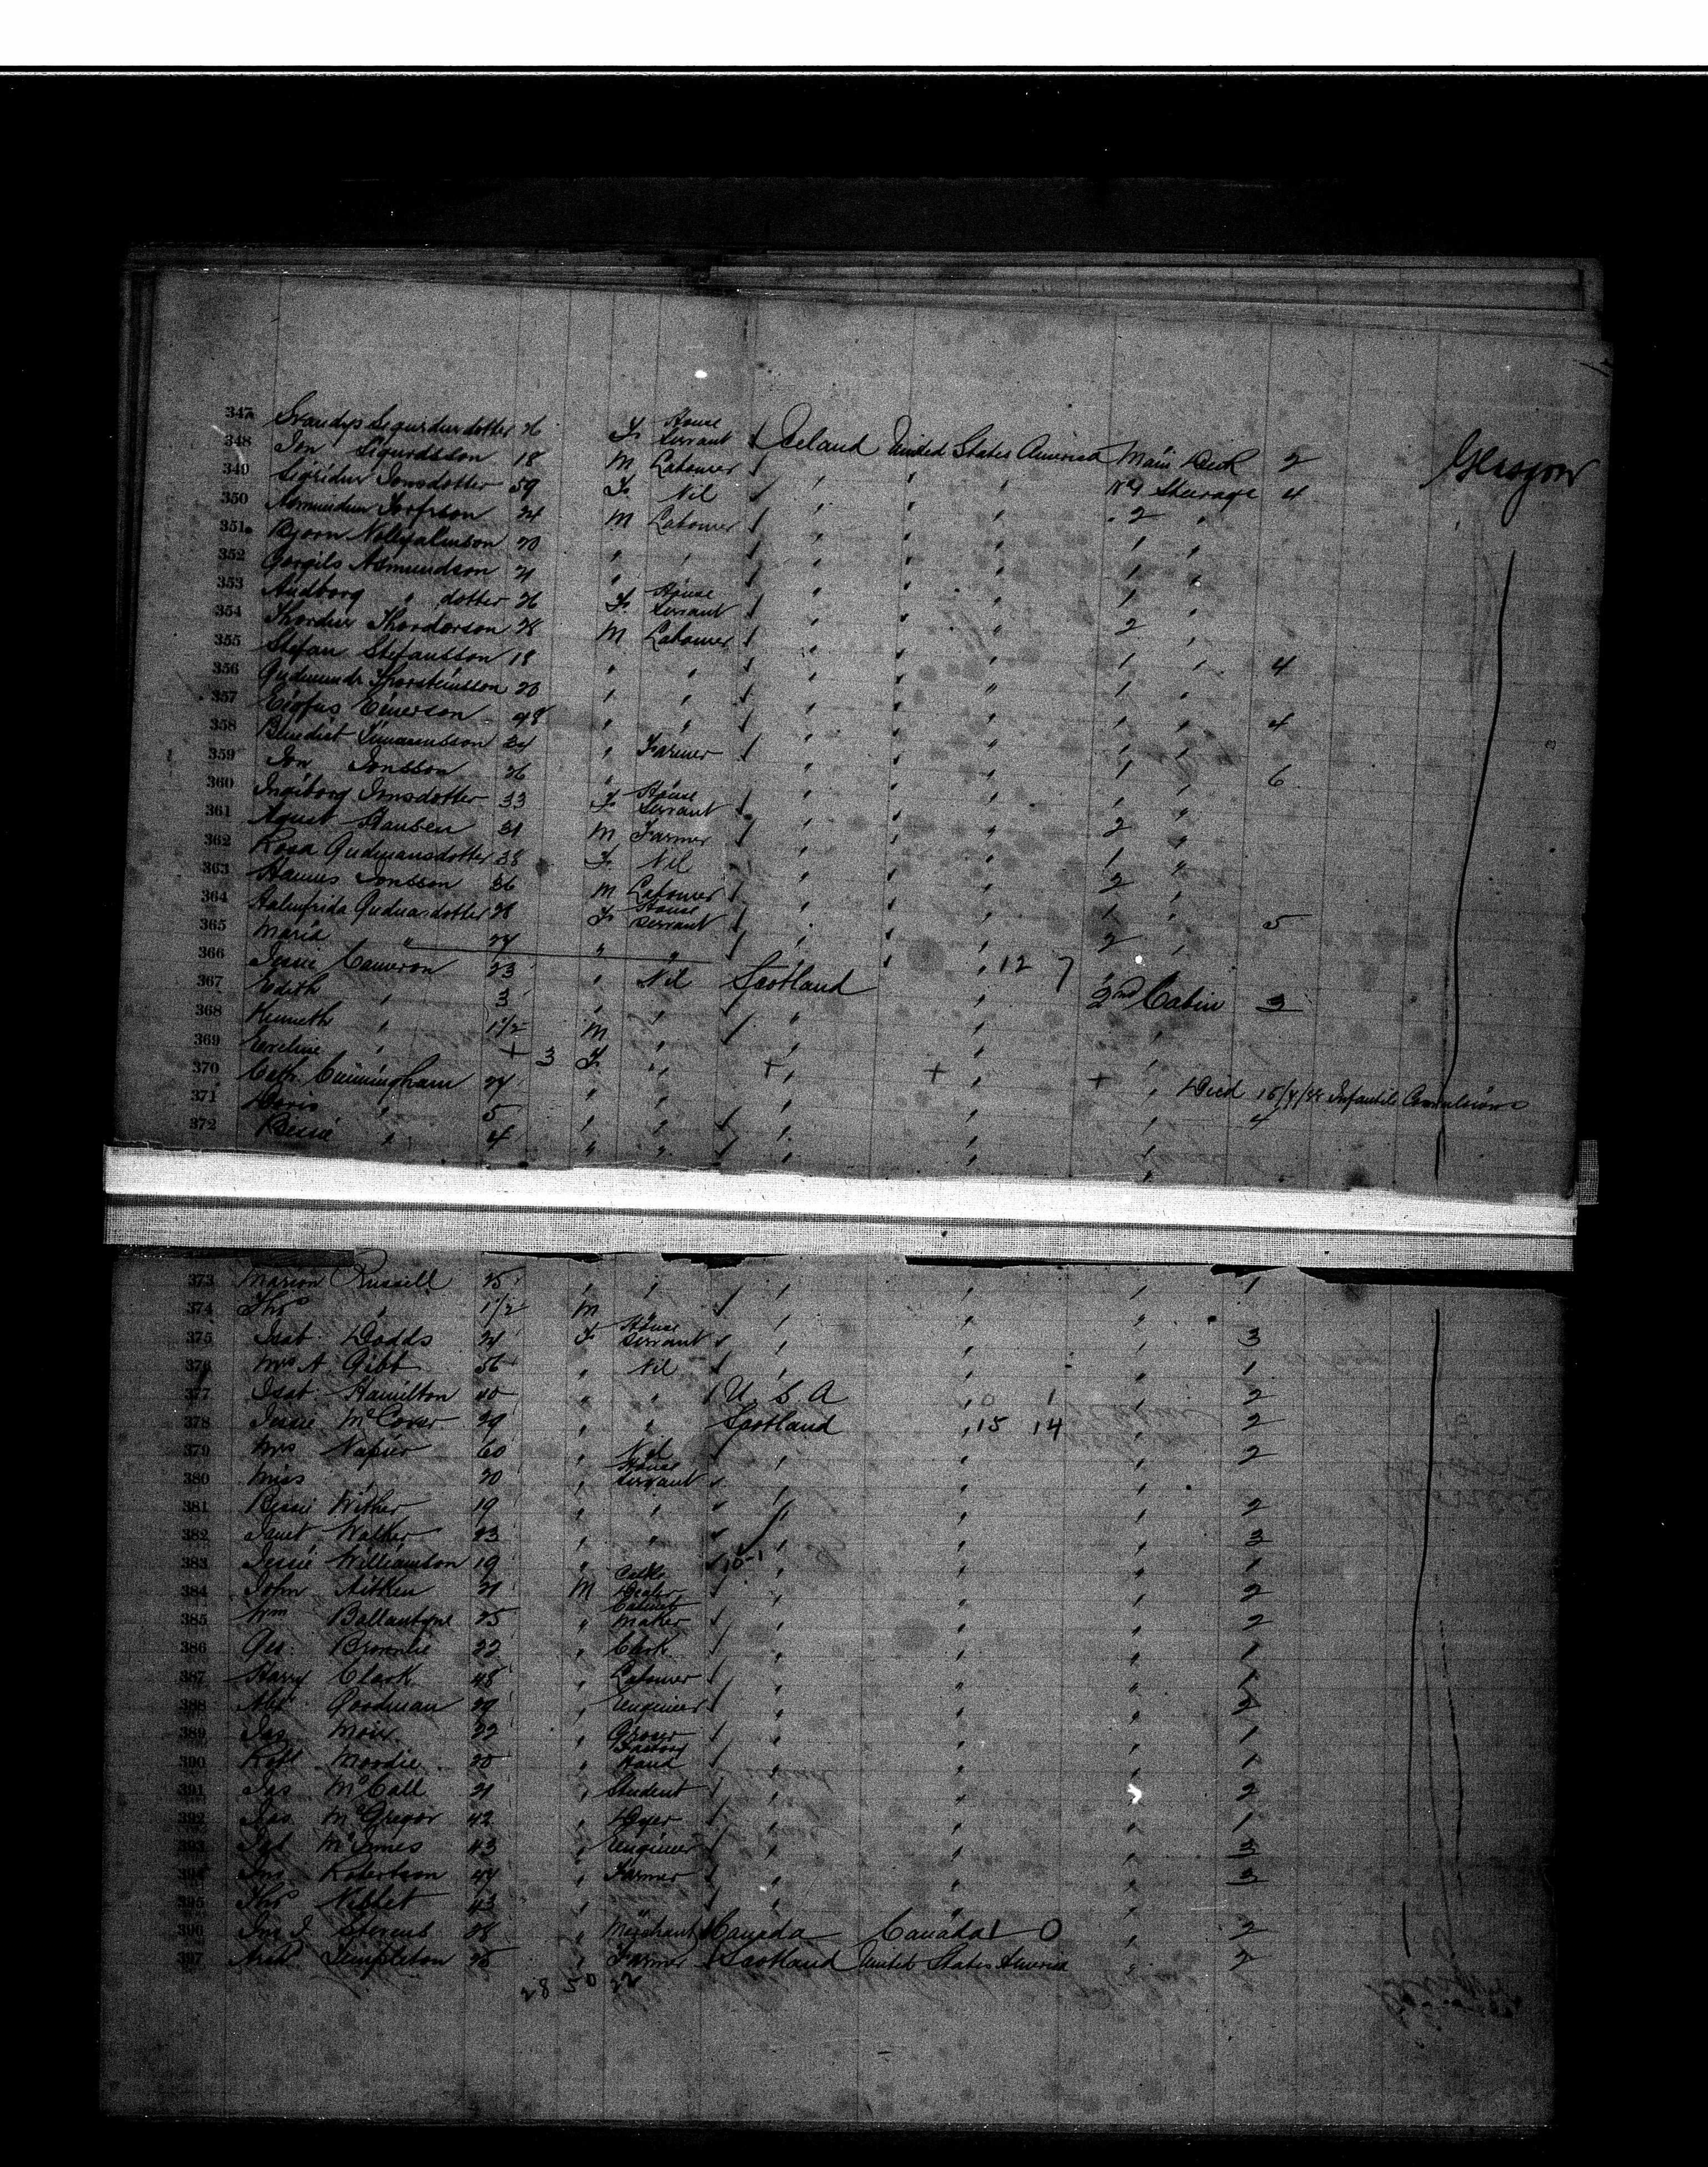 347 Svandys Sigurdurdotter 26 F House Servant Iceland United States America Main Deck 2 Glasgow
348 Jon Sigurdsson 18 M Labourer " " " No 1 Steerage 4
349 Sigridur Jonsdotter 59 F Nil " " " 2 "
350 24 M Labourer " " " 1 "
351 Bjorn 20 " " " " " 1 "
352 Asmundson 21 " " " " " 1 "
353 Audborg " dotter 26 F House Servant " " " 2 "
354 Thordur Thordarson 28 M Labourer " " " 1 " 4
355 Stefan Stefansson 18 " " " " " 1 "
356 Thorsteinsson 20 " " " " " 1 " 4
357 Einerson 48 " " " " " 1 "
358 Benedict 34 " Farmer " " " 1 " 6
359 Jon Jonsson 26 " " " " " " "
360 Ingiborg Jonsdotter 33 F House Servant " " " 2 "
361 August Hansen 31 M Farmer " " " 1 "
362 Rosa 38 F Nil " " " 2 "
363 Hannes Jonsson 36 M Labourer " " " 1 " 5
364 28 F House Servant " " " 2 "
365 Maria " 24 " " " " "
366 Jessie Cameron 23 " Nil Scotland " 12 7 2nd Cabin 3
367 Edith " 3 " " " " "
368 Kenneth " 1 1/2 M " " " "
369 Eveline " + 3 F " + " + " + " Died 15/4/88 Infantile Convulsions
370 Cath. Cunningham 24 " " " " " 4
371 Doris " 5 " " " " "
372 Bessie " 4 " " " " "
373 Marion Russell 25 " " " " " 1
374 Thos " 1 1/2 M " " "
375 Isab. Dodds 24 F House Servant " " " 3
376 Mrs A Gibb 56 " Nil " " " 1
377 Isab. Hamilton 40 " " U. S. A " 0 1 " 2
378 Jessie McCover 29 " " Scotland " 15 14 " 2
379 Mrs Napier 60 " Nil " " " 2
380 Miss " 20 " House Servant " " "
381 Bessie Wither 19 " " " " " 2
382 Janet Walker 23 " " " " " 3
383 Jessie Williamson 19 " " 10-1 " " 1
384 John Aitken 21 M Cattle Dealer " " " 2
385 Wm Ballantyne 25 " Cabinet Maker " " " 2
386 Geo. Brownlie 22 " Clerk " " " 1
387 Harry Clark 48 " Labourer " " " 1
388 Alexr. Goodman 29 " Engineer " " " 2
389 Jas Moir 22 " Grocer " " " 1
390 Robt Moodie 20 " Factory Hand " " " 1
391 Jas McCall 21 " Student " " " 2
392 Jas. McGregor 42 " Dyer " " " 1
393 McInnes 43 " Engineer " " " 3
394 Jno Robertson 44 " Farmer " " " 3
395 Thos Nisbet 43 " " " " "
396 Jno J. Stevens 28 " Merchant Canada Canada 1 0 " 2
397 Templeton 25 " Farmer Scotland United States America " 2
28 50 22